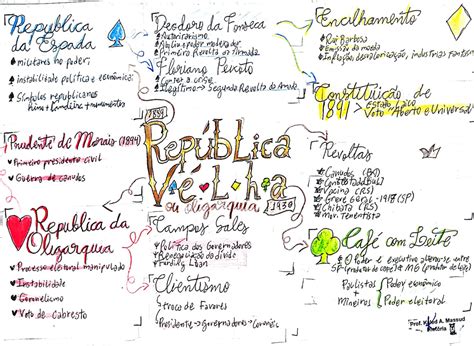 República
da Espada
militares no poder;
instabilidade política e econômica;
Símbolos republicanos
Hino + bandeira + monumentos
Deodoro da Fonseca
Autoritarismo
Aboliu poder moderador
Primeira Revolta da Armada
Floriano Peixoto
Conter a crise
Ilegítimo → Segunda Revolta da Armada
Encilhamento
Rui Barbosa
Emissão da moeda
Inflação, desvalorização, industrias fantasma
Constituição de
1891 → Estado Laico
Voto Aberto e Universal
Prudente de Morais (1894)
Primeiro presidente civil
Guerra de canudos
1889
República
Velha
ou oligarquia
1930
Revoltas
Canudos (BA)
Contestado
Vacina (RJ)
Greve Geral - 1917 (SP)
Chibata (RJ)
Mov. Tenentista
República da
Oligarquia
Processo eleitoral manipulado
Instabilidade
Coronelismo
Voto de Cabresto
Campos Sales
Política dos Governadores
Renegociação da dívida
Funding Loan
Clientismo
troca de Favores
Presidente → Governadores → Coronéis
Café com Leite
O Poder e executivo alterar-se entre
SP MG
Paulistas Poder econômico
+
Mineiros Poder eleitoral
Prof. A. Massud
História